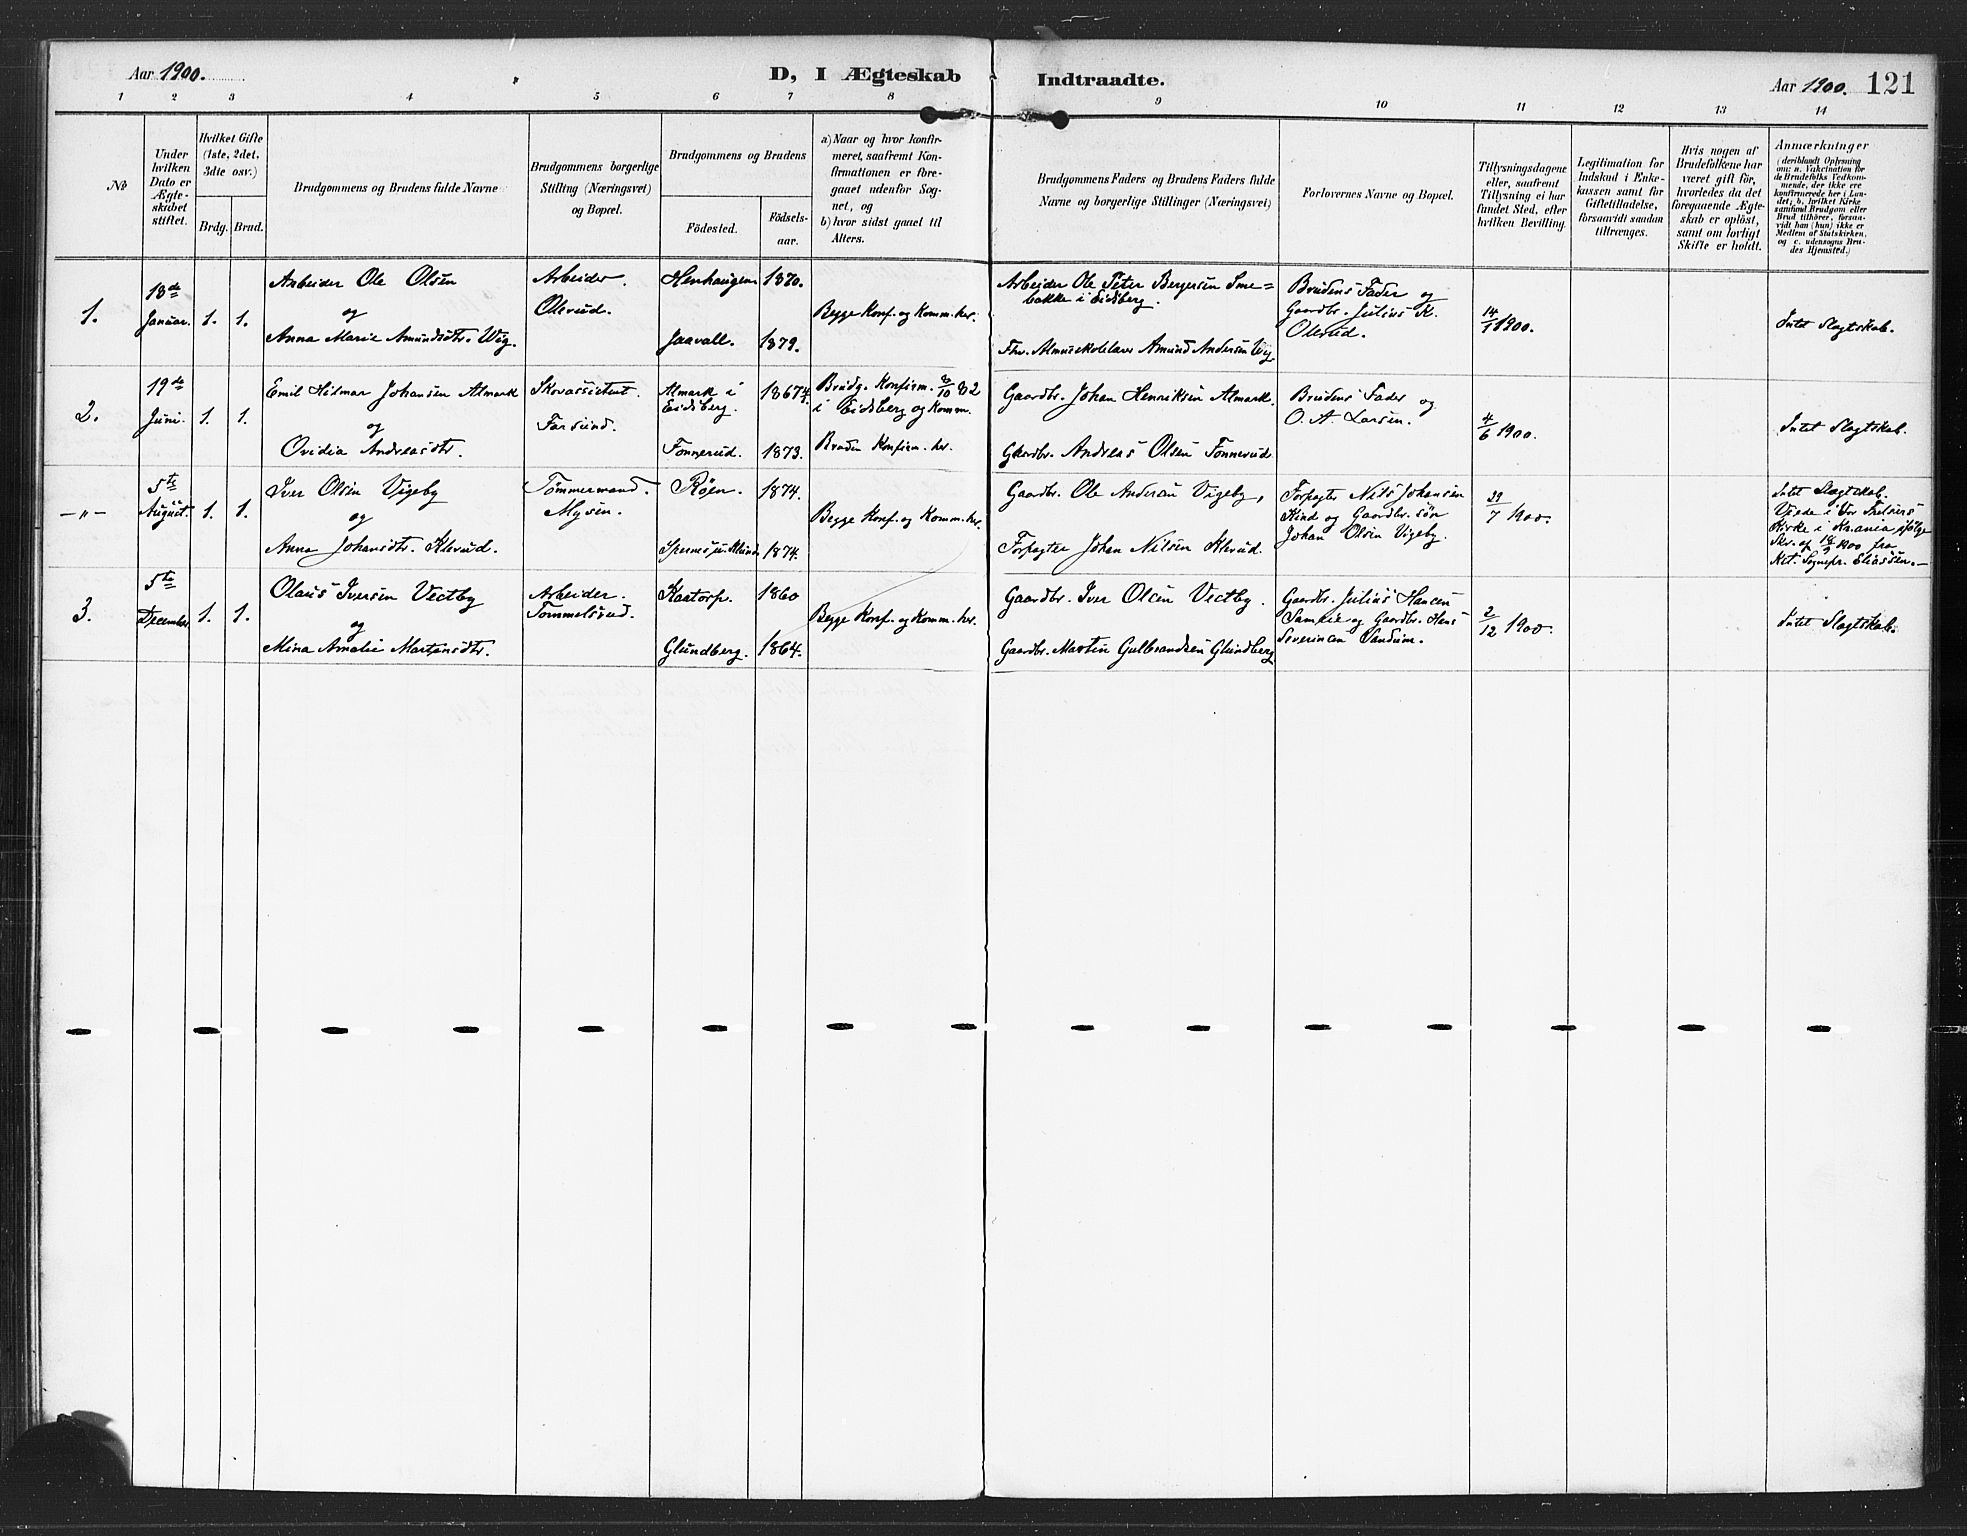 Aar 1900.
D, I Ægteskab
Indtraadte.
Aar 1900. 121
1 2 3 4 5 6 7 8 9 10 11 12 13 14
No
Under hvilken Dato er Ægteskabet stiftet.
Hvilket Gifte (1ste, 2det, 3die osv.)
Brdg. Brud.
Brudgommens og Brudens fulde Navne
Brudgommens borgerlige Stilling (Næringsvei) og Bopæl.
Brudgommens og Brudens
Födested.
Födselsaar.
a) Naar og hvor konfirmeret, saafremt Konfirmationen er foregaaet udenfor Sognet, og
b) hvor sidst gaaet til Alters.
Brudgommens Faders og Brudens Faders fulde Navne og borgerlige Stillinger (Næringsvei)
Forlovernes Navne og Bopæl.
Tillysningsdagene eller, saafremt Tillysning ei har fundet Sted, efter hvilken Bevilling.
Legitimation for Indskud i Enkekassen samt for Giftetilladelse, forsaavidt saadan tiltrænges.
Hvis nogen af Brudefolkene har været gift för, hvorledes da det foregaaende Ægteskab er oplöst, samt om lovligt Skifte er holdt.
Anmærkninger
(deriblandt Oplysning om: a. Vaksination for de Brudefolks Vedkommende, der ikke ere konfirmerede her i Landet; b. hvilket Kirkesamfund Brudgom eller Brud tilhörer, forsaavidt han (hun) ikke er Medlem af Statskirken, og c. udensogns Brudes Hjemsted.)
1.
18de Januar.
1. 1.
Arbeider Ole Olsen
og
Anna Marie Amundsdtr. Wig.
Arbeider.
Olerud.
Henhaugen 1870.
Jaavall. 1879.
Begge Konf. og Komm. her.
Arbeider Ole Peter Bergersen Smebakke i Eidsberg.
Fhv. Almueskolelærer Amund Andersen Wig
Brudens Fader og
Gaardbr. Julius K.
Olerud.
14/1 1900.
Intet Slagtskab.
2.
19de Juni.
1. 1.
Emil Hilmar Johansen Almark
og
Ovidia Andreasdtr.
Skovassistent.
Farsund.
Almark i
Eidsberg. 1867
Fonnerud. 1873.
Brudg. Konfirm. 8/10 82
i Eidsberg og Komm.
Bruden Konfirm. her.
Gaardbr. Johan Henriksen Almark.
Gaardbr. Andreas Olsen Fonnerud
Brudens Fader og
O. A. Larsen.
4/6 1900.
Intet Slagtskab.
— " —
5te August.
1. 1.
Iver Olsen Vigeby
og
Anna Johansdtr. Klerud.
Tömmermand.
Mysen.
Röen. 1874.
1874.
Begge Konf. og Komm. her.
Gaardbr. Ole Andersen Vigeby,
Forpagter Johan Nilsen Klerud.
Forpagter Nils Johansen
Kind og Gaardbr. sön
Johan Olsen Vigeby.
29/7 1900.
Intet Slagtskab.
Viede i Vor Frelsers
Kirke i Krania ifölge
Skr. af 18/9 1900 fra
Res. Sognepr. Eliassen.—
3.
5te December
1. 1.
Olaus Iversen Vestby
og
Mina Amalie Martinsdtr.
Arbeider.
Tommelsrud.
Kaatorp. 1860
Glundberg. 1864.
Begge Konf. og Komm. her.
Gaardbr. Iver Olsen Vestby.
Gaardbr. Martin Gulbrandsen Glundberg
Gaardbr. Julius Hansen
og Gaardbr. Hans
Severinsen Sandum.
2/12 1900.
Intet Slagtskab.